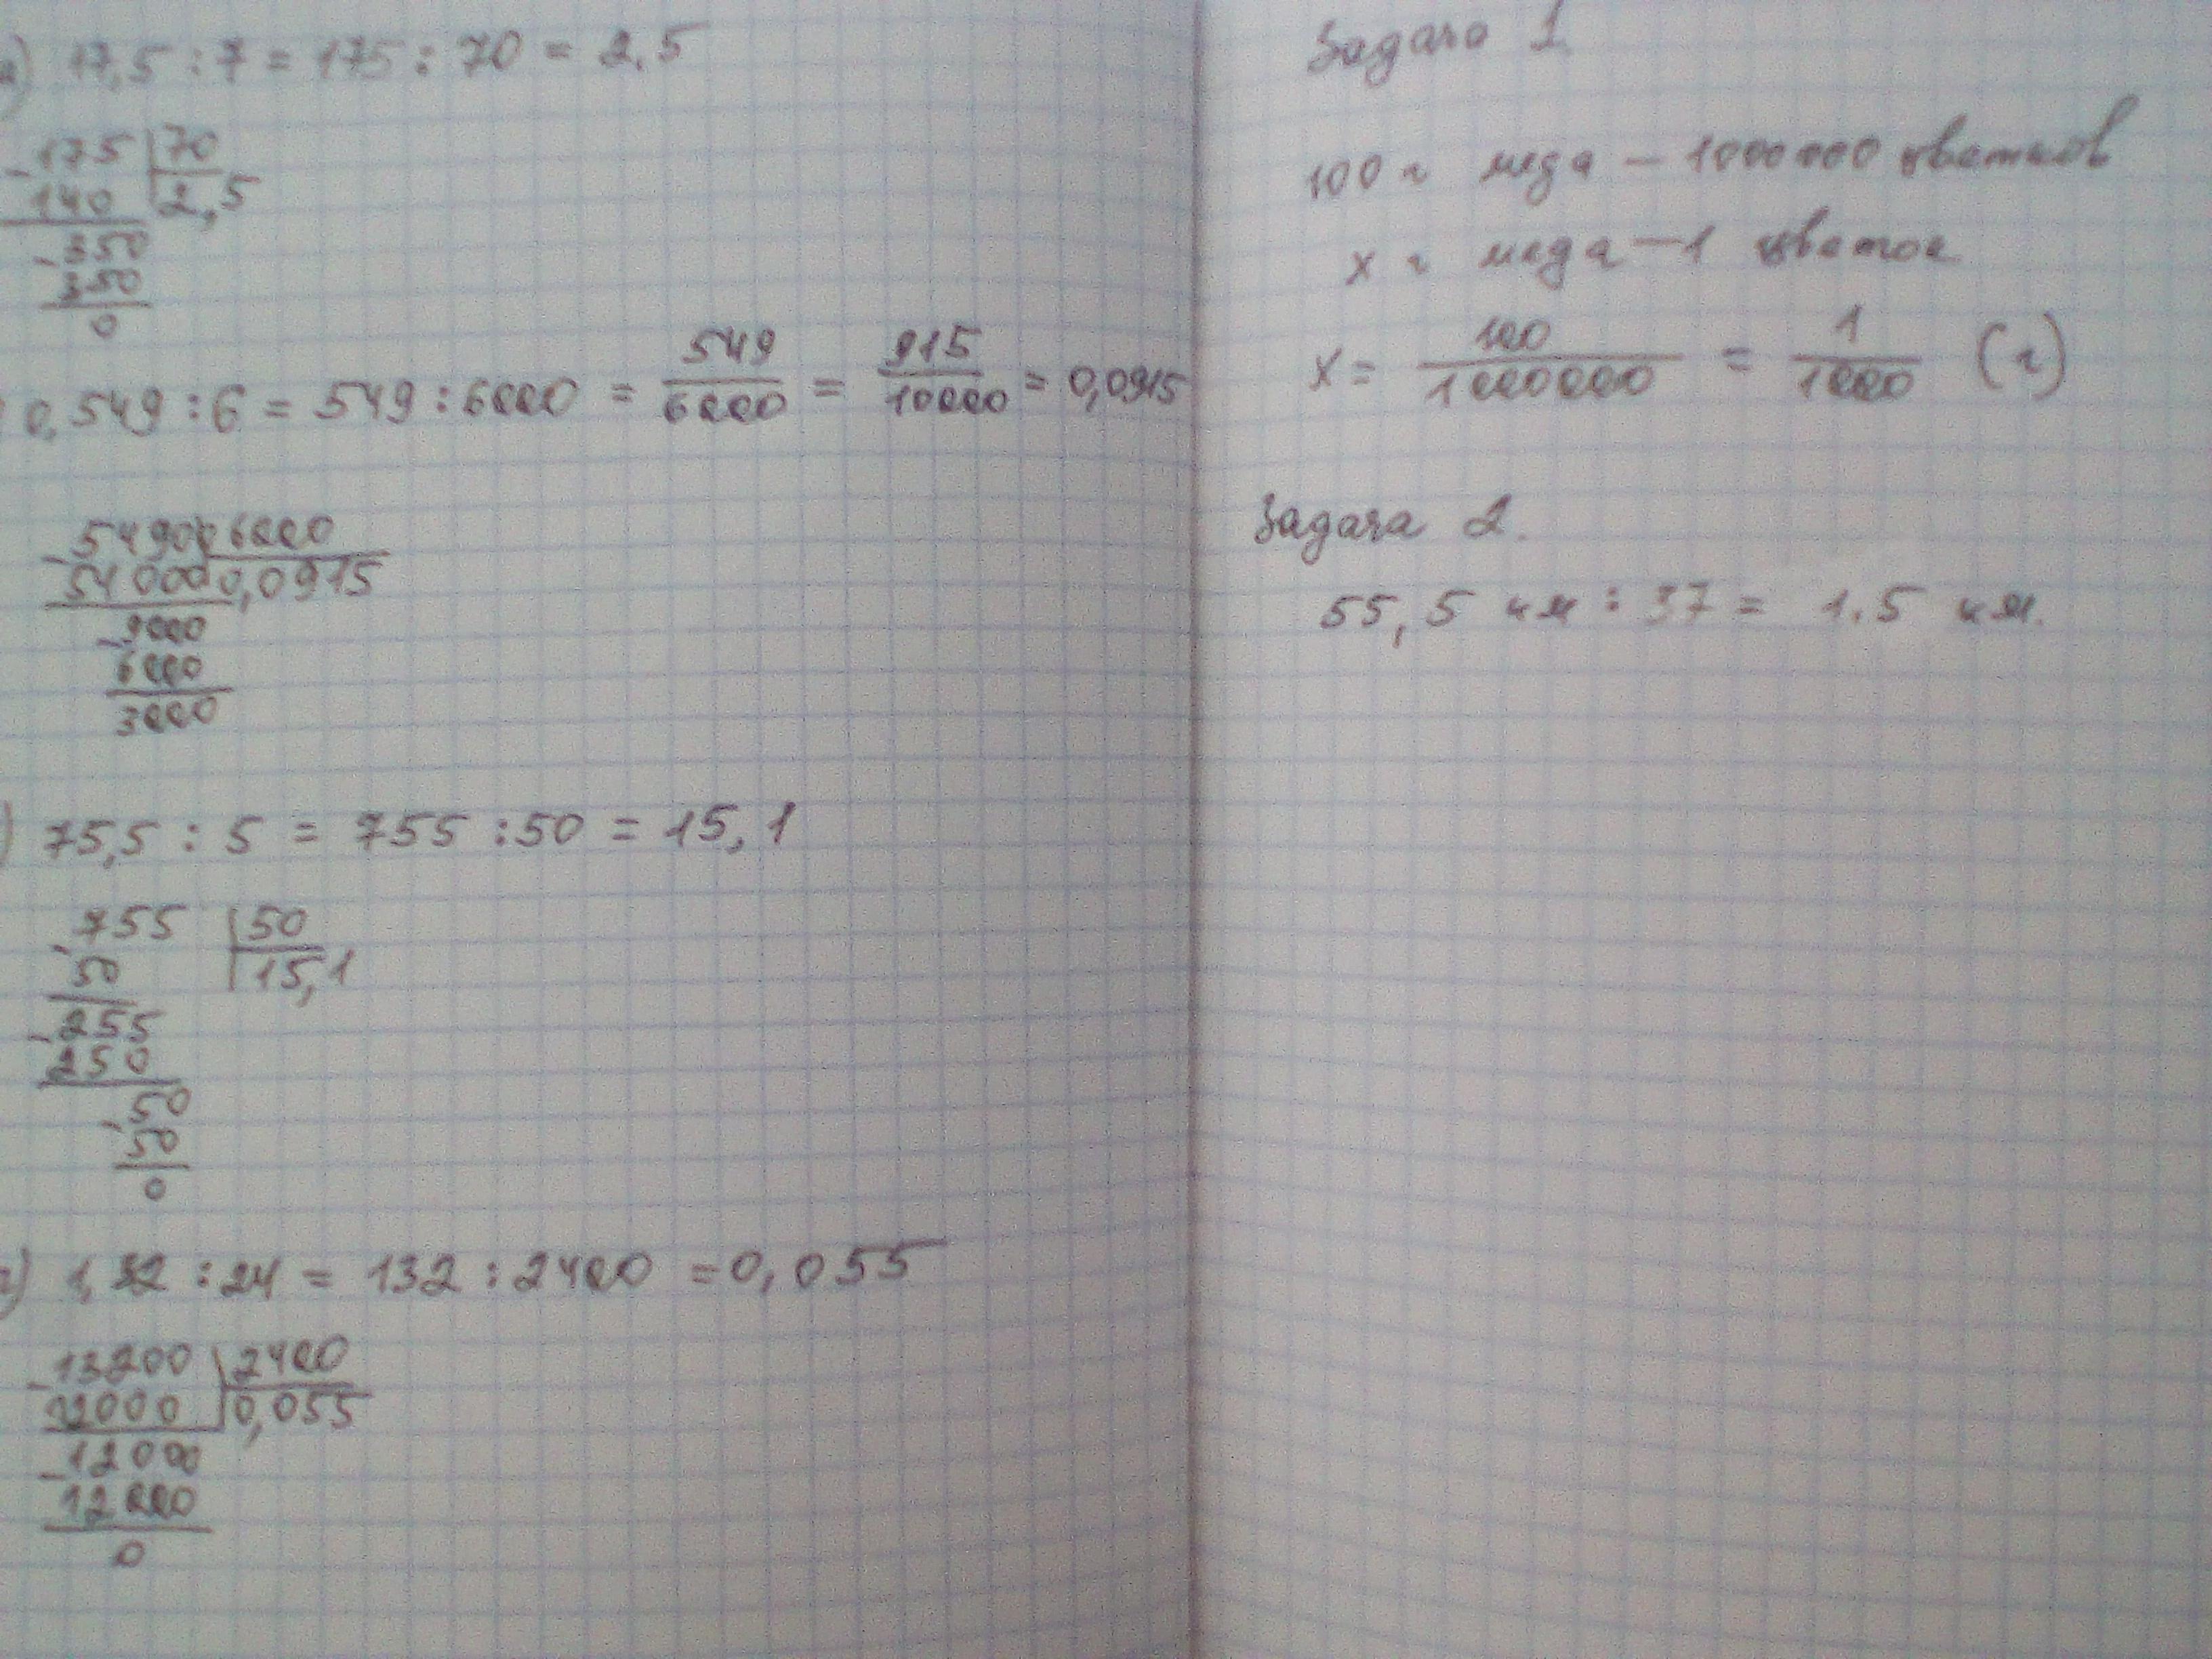 а) 17,5 : 7 = 175 : 70 = 2.5
-175 70
140 2,5
-350
350
0
0,549 : 6 = 549 : 6000 = 549/6000 = 915/10000 = 0,0915
-54900 6000
54000 0,0915
-9000
6000
3000
) 75,5 : 5 = 755 : 50 = 15,1
-755 50
50 15,1
-255
250
-50
50
0
г) 1,32 : 24 = 132 : 2400 = 0,055
-13200 2400
12000 0,055
-12000
12000
0
Задача 1
100 г меда — 1000000 цветков
x г меда — 1 цветок
x = 100/1000000 = 1/1000 (г)
Задача 2.
55,5 км : 37 = 1.5 км.